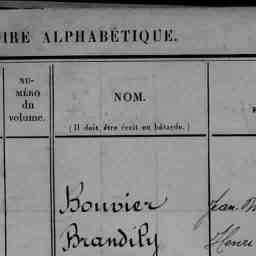 IRE ALPHABÉTIQUE.
NU-
MÉRO
du
volume.
NOM.
(Il doit être écrit en bâtarde.)
Bouvier Jean-
Brandily Henri